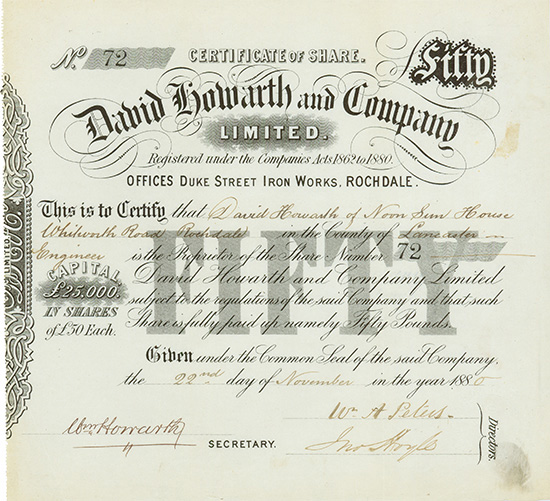 No. 72
CERTIFICATE OF SHARE.
Fifty
David Howarth and Company
LIMITED.
Registered under the Companies Acts 1862 to 1880.
OFFICES DUKE STREET IRON WORKS, ROCHDALE.
This is to Certify that David Howarth of Noon Sun House
Whitworth Road Rochdale in the County of Lancaster
Engineer is the Proprietor of the Share Number 72
David Howarth and Company Limited
subject to the regulations of the said Company and that such
Share is fully paid up namely Fifty Pounds.
FIFTY
CAPITAL
£25,000.
IN SHARES
of £50 Each.
Given under the Common Seal of the said Company,
the 22nd day of November in the year 1880
Wm A Peters
Wm Howarth
SECRETARY.
Jno Hoyle
Directors.
LIMITED